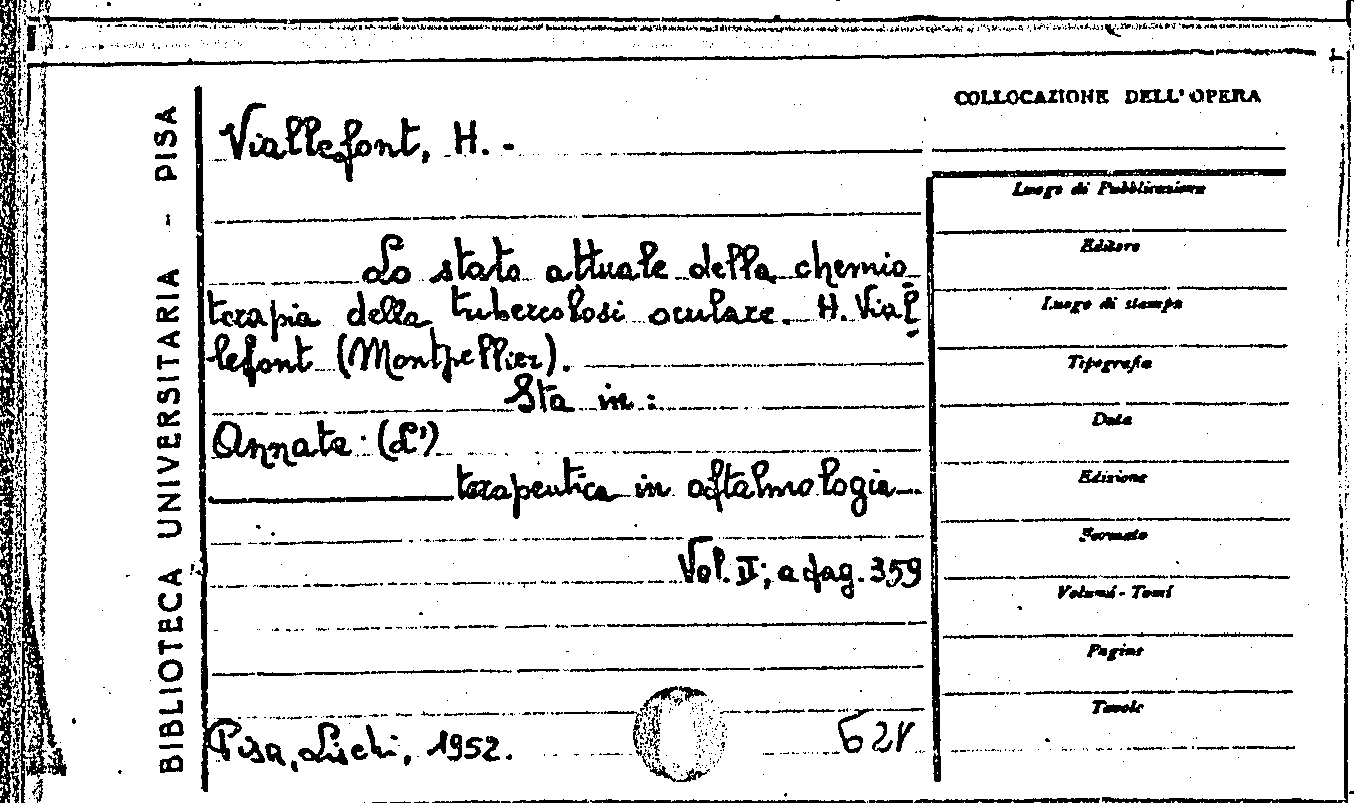 BIBLIOTECA UNIVERSITARIA - PISA
Viallefont, H. -
Lo stato attuale della chemio
terapia della tubercolosi oculare. H. Vial
lefont (Montpellier).
Sta in:
Annata (L')
terapeutica in oftalmologia.
Vol. II; a pag. 359
Pisa, Lischi, 1952.
COLLOCAZIONE DELL'OPERA
Luogo di Pubblicazione
Editore
Luogo di stampa
Tipografia
Data
Edizione
Formato
Volumi - Tomi
Pagine
Tavole